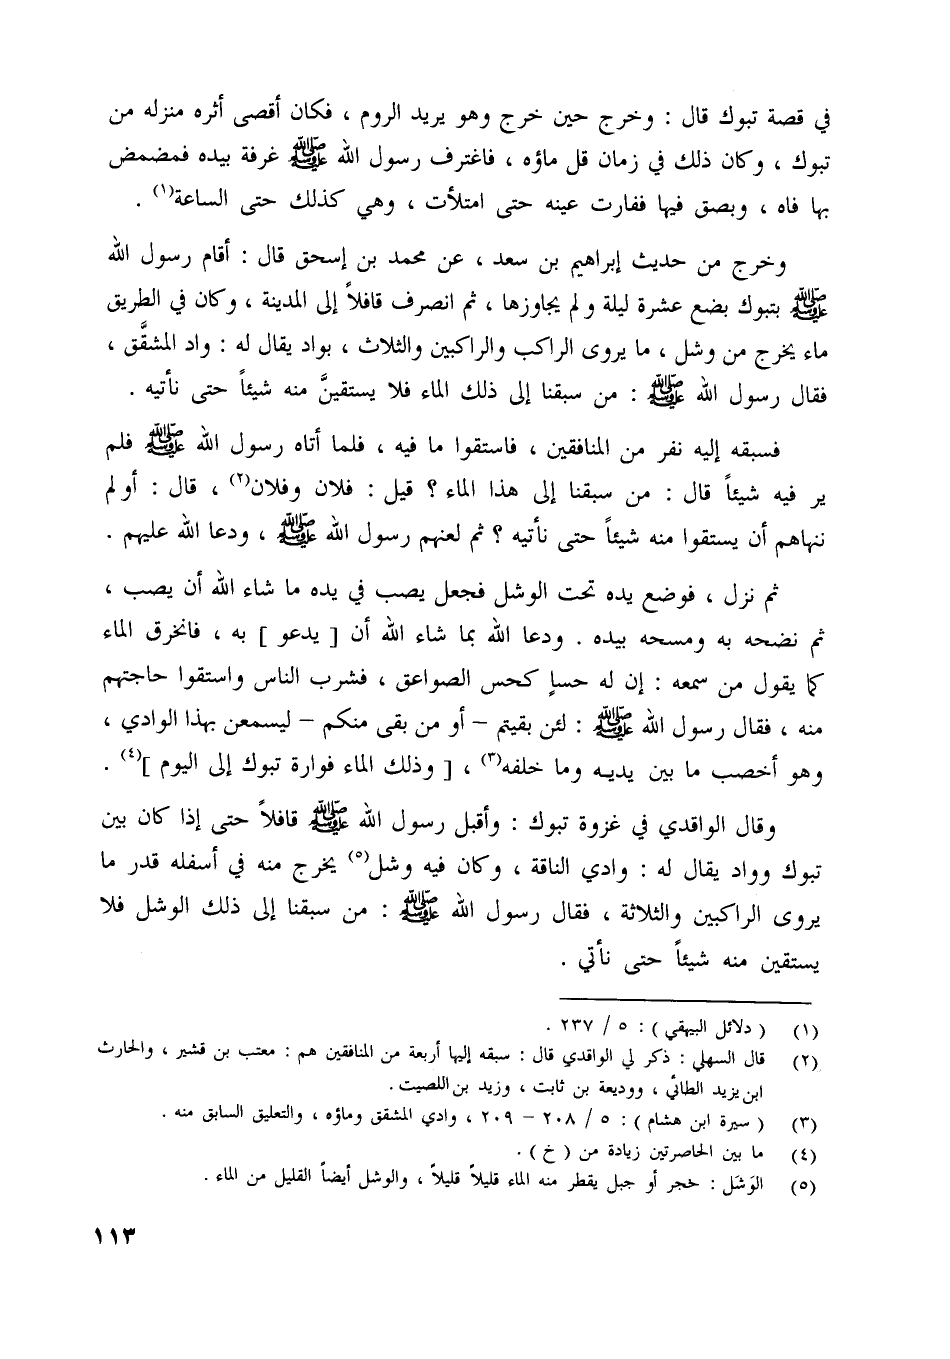 في قصة تبوك قال : وخرج حين خرج وهو يريد الروم ، فكان أقصى أثره منزله من
تبوك ، وكان ذلك في زمان قل ماؤه ، فاغترف رسول الله ﷺ غرفة بيده فمضمض
بها فاه ، وبصق فيها ففارت عينه حتى امتلأت ، وهي كذلك حتى الساعة(١) .
وخرج من حديث إبراهيم بن سعد ، عن محمد بن إسحق قال : أقام رسول الله
ﷺ بتبوك بضع عشرة ليلة ولم يجاوزها ، ثم انصرف قافلاً إلى المدينة ، وكان في الطريق
ماء يخرج من وشل ، ما يروى الراكب والراكبين والثلاث ، بواد يقال له : واد المشقَّق ،
فقال رسول الله ﷺ : من سبقنا إلى ذلك الماء فلا يستقينَّ منه شيئاً حتى نأتيه .
فسبقه إليه نفر من المنافقين ، فاستقوا ما فيه ، فلما أتاه رسول الله ﷺ فلم
ير فيه شيئاً قال : من سبقنا إلى هذا الماء ؟ قيل : فلان وفلان(٢) ، قال : أو لم
ننهاهم أن يستقوا منه شيئاً حتى نأتيه ؟ ثم لعنهم رسول الله ﷺ ، ودعا الله عليهم .
ثم نزل ، فوضع يده تحت الوشل فجعل يصب في يده ما شاء الله أن يصب ،
ثم نضحه به ومسحه بيده . ودعا الله بما شاء الله أن [ يدعو ] به ، فانخرق الماء
كما يقول من سمعه : إن له حساٍ كحس الصواعق ، فشرب الناس واستقوا حاجتهم
منه ، فقال رسول الله ﷺ : لئن بقيتم – أو من بقى منكم – ليسمعن بهذا الوادي ،
وهو أخصب ما بين يديه وما خلفه(٣) ، [ وذلك الماء فوارة تبوك إلى اليوم ](٤) .
وقال الواقدي في غزوة تبوك : وأقبل رسول الله ﷺ قافلاً حتى إذا كان بين
تبوك وواد يقال له : وادي الناقة ، وكان فيه وشل(٥) يخرج منه في أسفله قدر ما
يروى الراكبين والثلاثة ، فقال رسول الله ﷺ : من سبقنا إلى ذلك الوشل فلا
يستقين منه شيئاً حتى نأتي .
(١) ( دلائل البيهقي ) : ٥ / ٢٣٧ .
(٢) قال السهلي : ذكر لي الواقدي قال : سبقه إليها أربعة من المنافقين هم : معتب بن قشير ، والحارث
ابن يزيد الطائي ، ووديعة بن ثابت ، وزيد بن اللصيت .
(٣) ( سيرة ابن هشام ) : ٥ / ٢٠٨ – ٢٠٩ ، وادي المشقق وماؤه ، والتعليق السابق منه .
(٤) ما بين الحاصرتين زيادة من ( خ ) .
(٥) الوَشَل : حجر أو جبل يقطر منه الماء قليلاً قليلاً ، والوشل أيضاً القليل من الماء .
١١٣